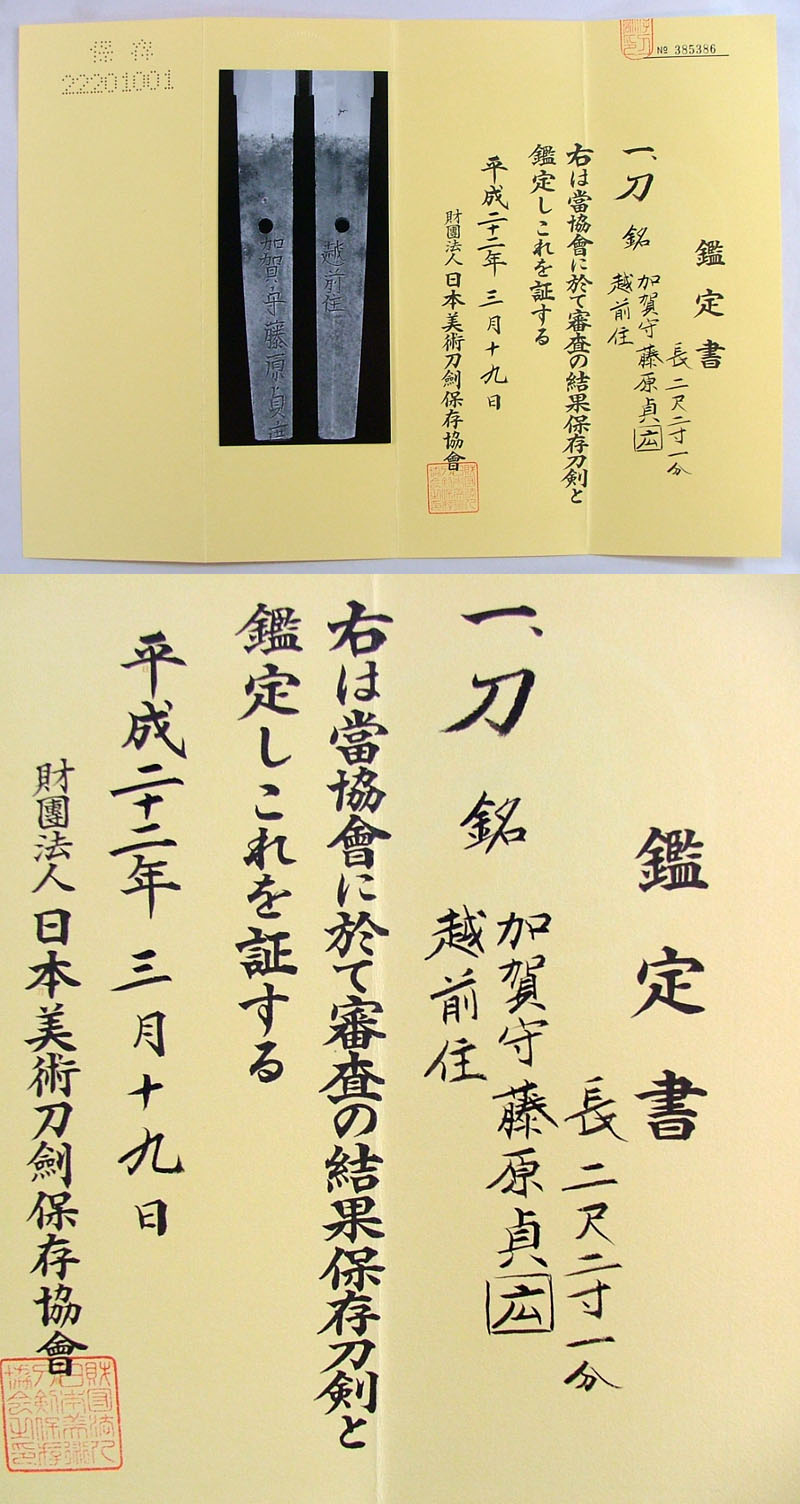 保存
22201001
№ 385386
鑑定書
長 二尺二寸一分
一、刀 銘 加賀守藤原貞広
越前住
右は當協會に於て審査の結果保存刀剣と
鑑定しこれを証する
平成二十二年 三月十九日
財團法人 日本美術刀劍保存協會
越前住
加賀守藤原貞広
鑑定書
長 二尺二寸一分
一、刀 銘 加賀守藤原貞広
越前住
右は當協會に於て審査の結果保存刀剣と
鑑定しこれを証する
平成二十二年 三月十九日
財團法人 日本美術刀劍保存協會